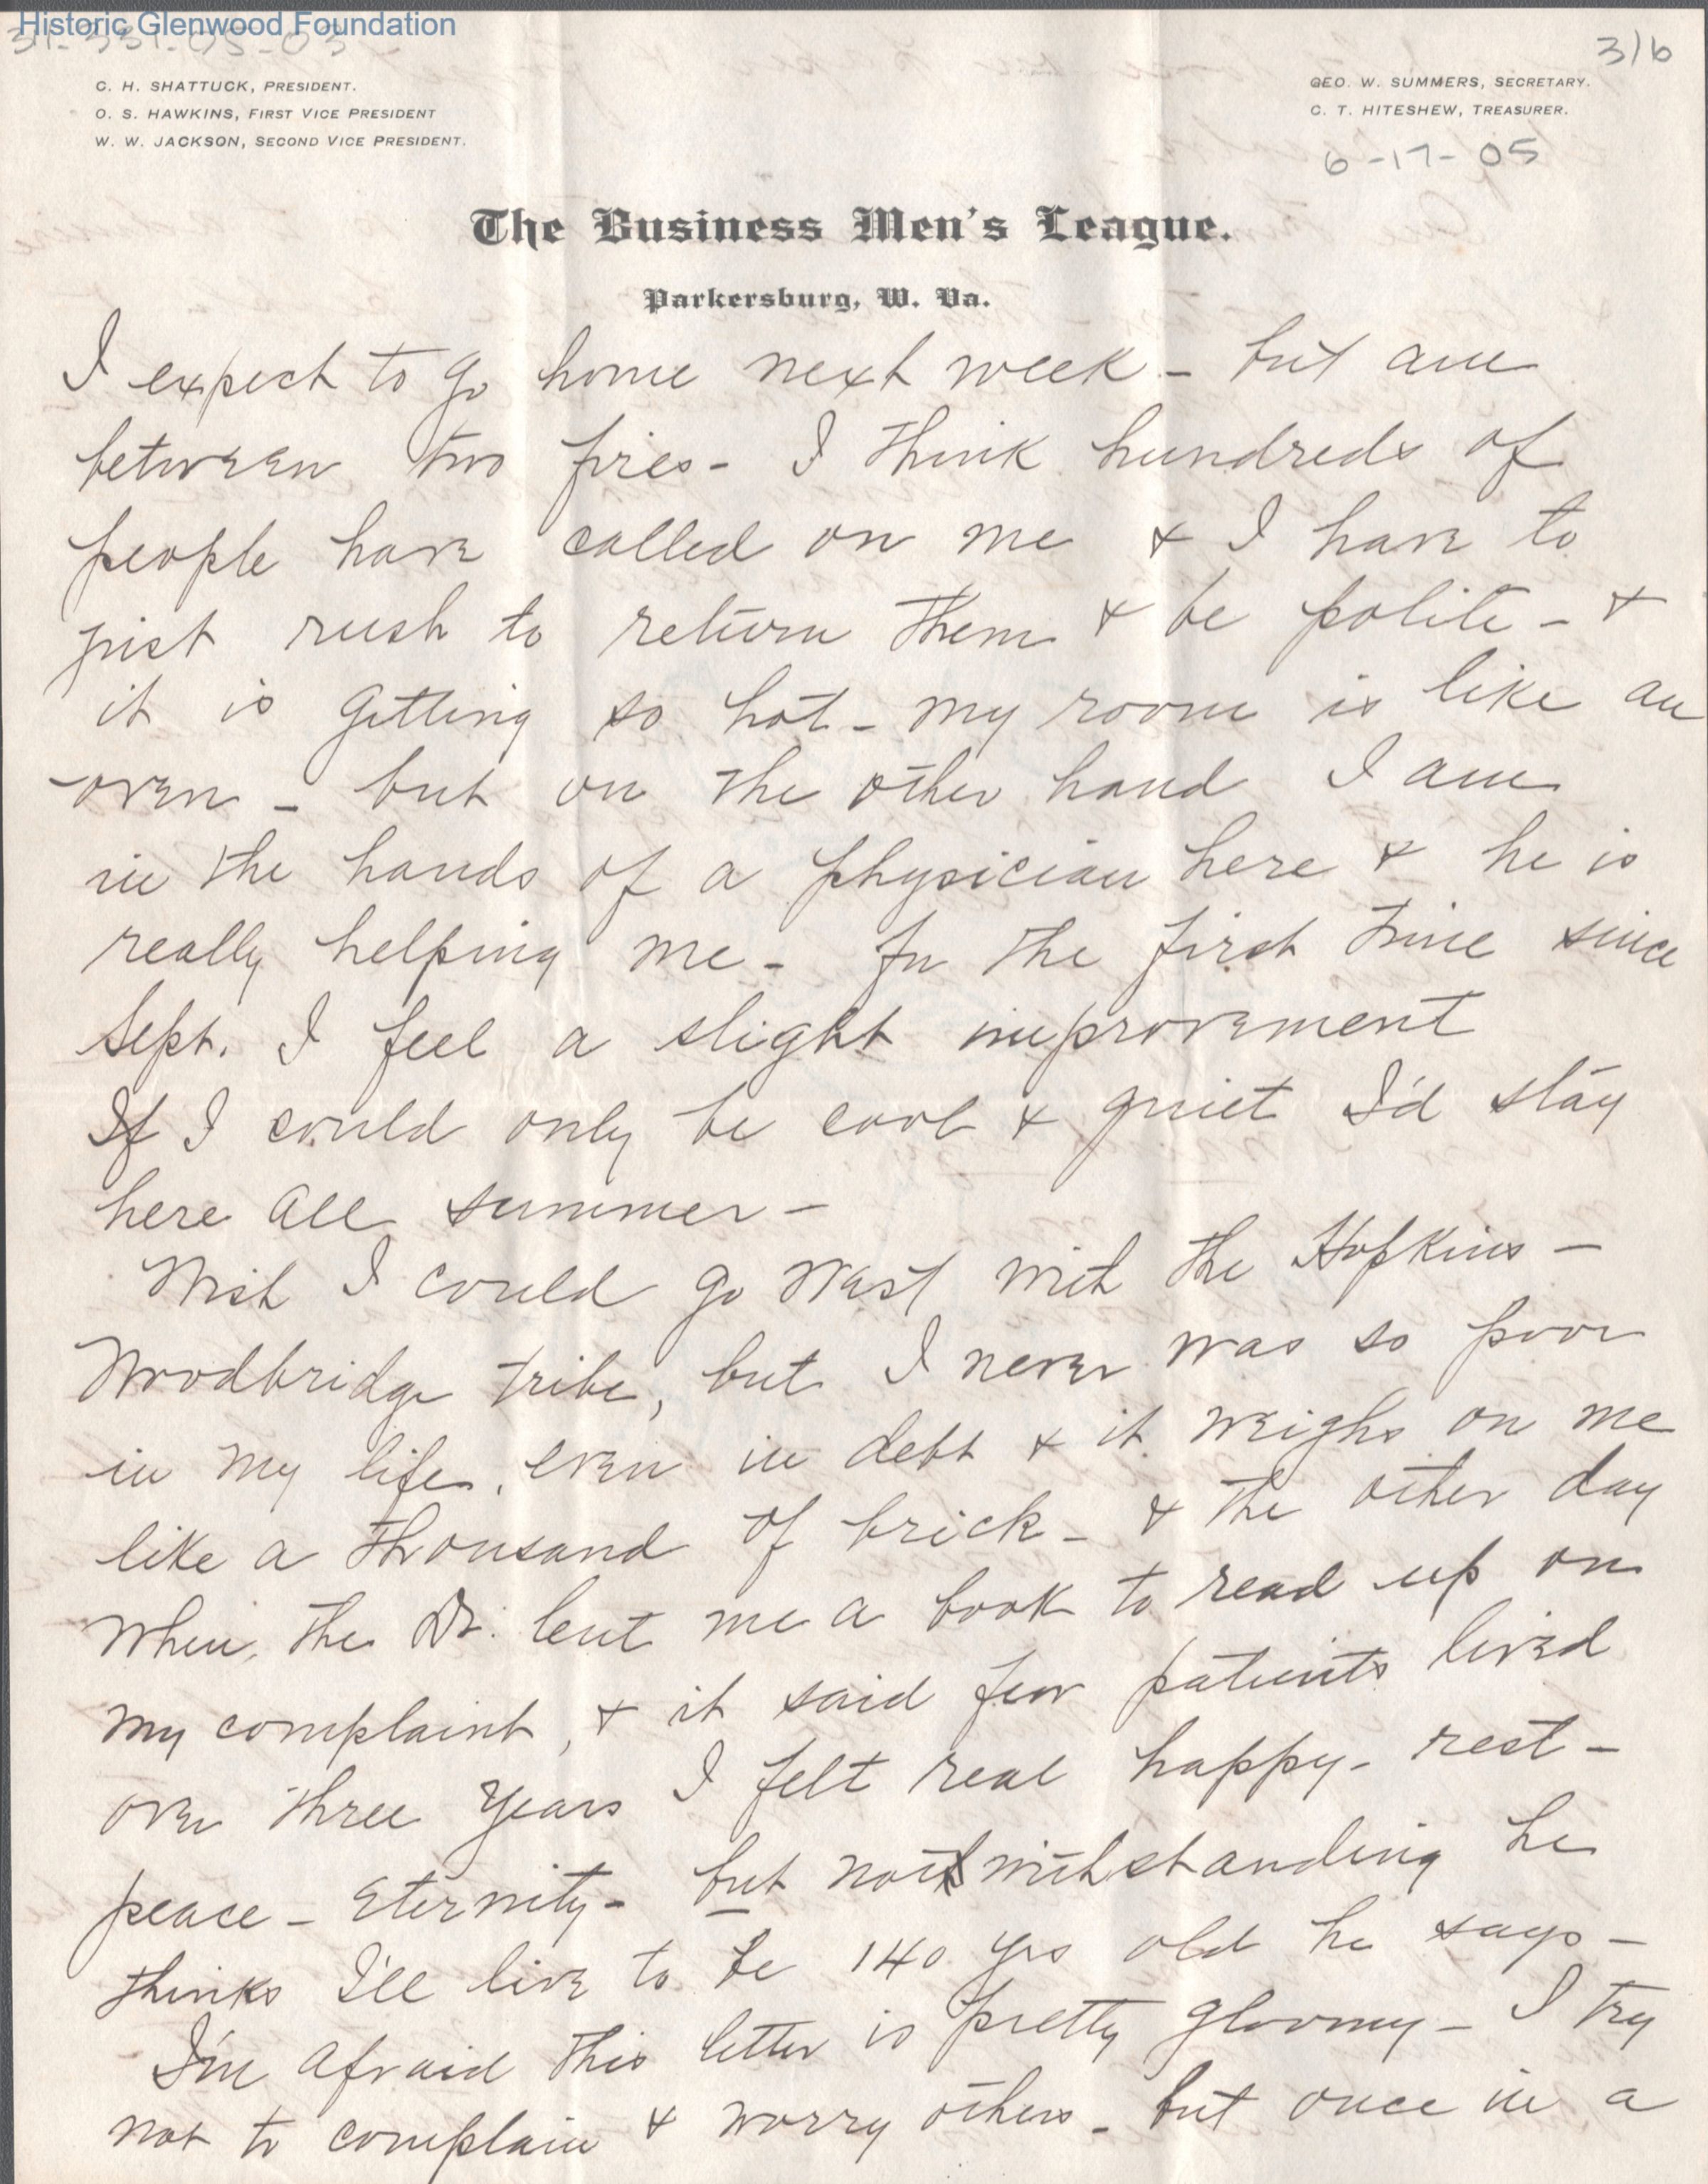 Historic Glenwood Foundation
31-331-05-03
3/6
C. H. SHATTUCK, PRESIDENT.
O. S. HAWKINS, FIRST VICE PRESIDENT
W. W. JACKSON, SECOND VICE PRESIDENT.
GEO. W. SUMMERS, SECRETARY.
C. T. HITESHEW, TREASURER.
6-17-05
The Business Men's League.
Parkersburg, W. Va.
I expect to go home next week - but am
between two fires - I think hundreds of
people have called on me & I have to
just rush to return them & be polite - &
it is getting so hot - my room is like an
oven - but on the other hand I am
in the hands of a physician here & he is
really helping me - For the first time since
Sept. I feel a slight improvement
If I could only be cool & quiet I'd stay
here all summer -
Wish I could go West with the Hopkins -
Woodbridge tribe, but I never was so poor
in my life, even in debt & it weighs on me
like a thousand of brick - & the other day
when, the Dr. lent me a book to read up on
my complaint, & it said few patients lived
over three years I felt real happy - rest -
peace - Eternity - but notwithstanding he
thinks I'll live to be 140 yrs old he says -
I'm afraid this letter is pretty gloomy - I try
not to complain & worry others - but once in a